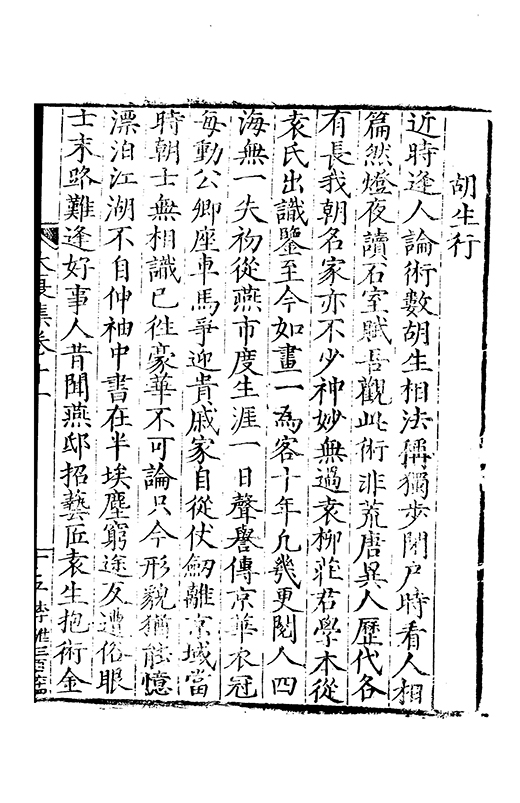 胡生行
近時逢人論術數胡生相法稱獨步閉戶時看人相
篇然燈夜讀石室賦吾觀此術非荒唐異人歷代各
有長我朝名家亦不少神妙無過袁柳莊君學本從
袁氏出識鑒至今如畫一為客十年凡幾更閱人四
海無一失初從燕市度生涯一日聲譽傳京華衣冠
每動公卿座車馬爭迎貴戚家自從仗劒離京域當
時朝士無相識已往豪華不可論只今形貌猶能憶
漂泊江湖不自伸袖中書在半埃塵窮途反遭俗眼
士末路難逢好事人昔聞燕邸招藝匠袁生抱術金
集卷十一
十五